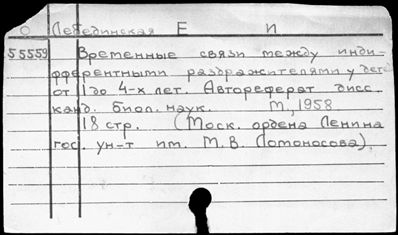 О Лебединская Е И
55559 Временные связи между инди-
фферентными раздражителями у детей
от 1 до 4-х лет. Автореферат дисс.
канд. биол. наук. М., 1958
18 стр. (Моск. ордена Ленина
гос. ун-т им. М. В. Ломоносова).